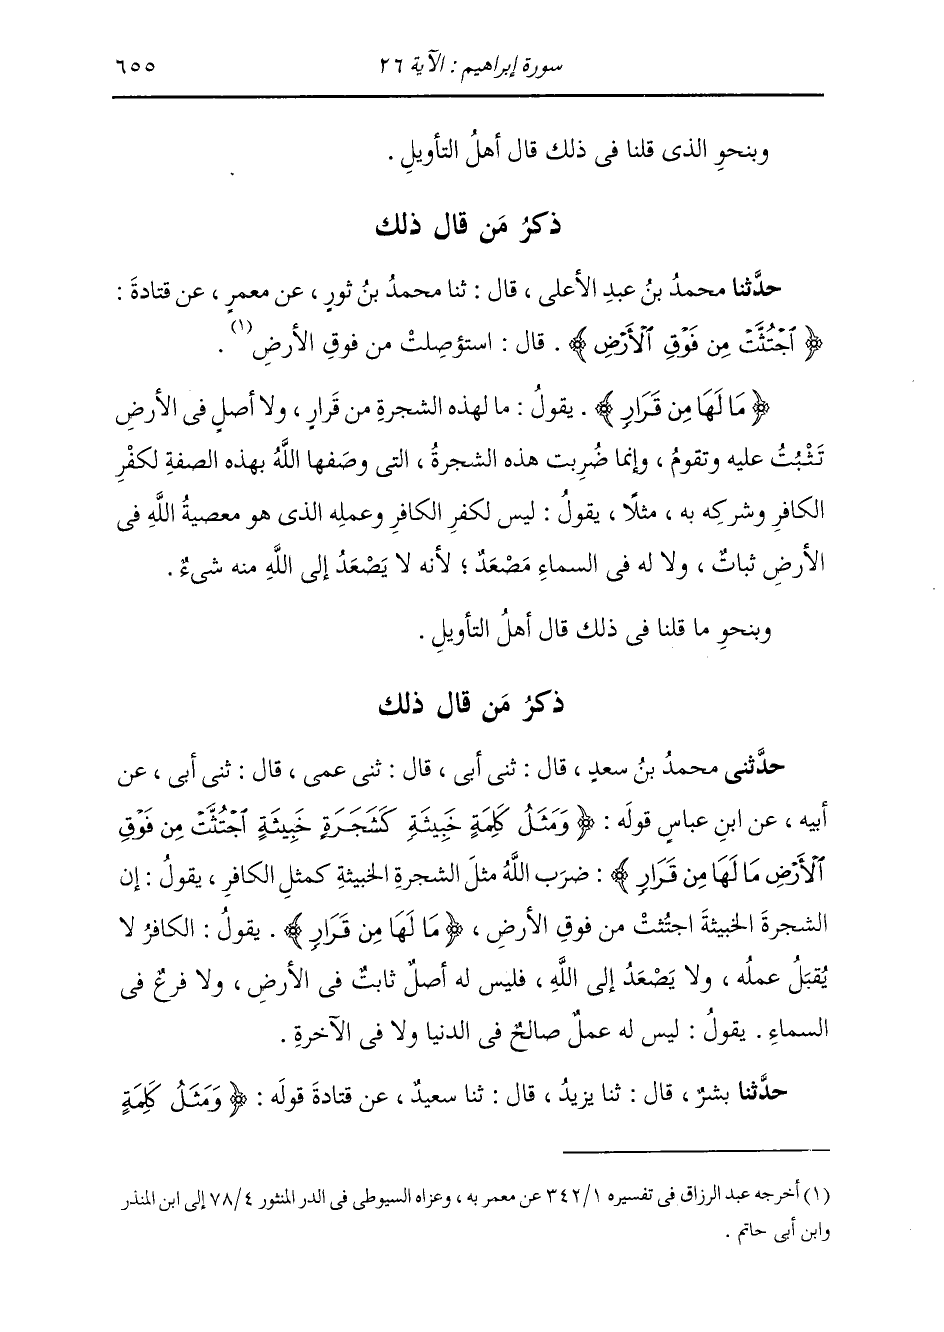 سورة إبراهيم : الآية ٢٦
٦٥٥
وبنحوِ الذى قلنا فى ذلك قال أهلُ التأويلِ .
ذكرُ مَن قال ذلك
حدَّثنا محمدُ بنُ عبدِ الأعلى ، قال : ثنا محمدُ بنُ ثورٍ ، عن معمرٍ ، عن قتادةَ :
﴿ ٱجْتُثَّتْ مِن فَوْقِ ٱلْأَرْضِ ﴾ . قال : استؤصِلتْ من فوقِ الأرضِ (١) .
﴿ مَا لَهَا مِن قَرَارٍ ﴾ . يقولُ : ما لهذه الشجرةِ من قَرارٍ ، ولا أصلٍ فى الأرضِ
تَثْبُتُ عليه وتقومُ ، وإنما ضُرِبت هذه الشجرةُ ، التى وصَفها اللَّهُ بهذه الصفةِ لكفْرِ
الكافرِ وشركِه به ، مثلًا ، يقولُ : ليس لكفرِ الكافرِ وعملِه الذى هو معصيةُ اللَّهِ فى
الأرضِ ثباتٌ ، ولا له فى السماءِ مَصْعَدٌ ؛ لأنه لا يَصْعَدُ إلى اللَّهِ منه شىءٌ .
وبنحوِ ما قلنا فى ذلك قال أهلُ التأويلِ .
ذكرُ مَن قال ذلك
حدَّثنى محمدُ بنُ سعدٍ ، قال : ثنى أبى ، قال : ثنى عمى ، قال : ثنى أبى ، عن
أبيه ، عن ابنِ عباسٍ قولَه : ﴿ وَمَثَلُ كَلِمَةٍ خَبِيثَةٍ كَشَجَرَةٍ خَبِيثَةٍ ٱجْتُثَّتْ مِن فَوْقِ
ٱلْأَرْضِ مَا لَهَا مِن قَرَارٍ ﴾ : ضرَب اللَّهُ مثلَ الشجرةِ الخبيثةِ كمثلِ الكافرِ ، يقولُ : إن
الشجرةَ الخبيثةَ اجتُثتْ من فوقِ الأرضِ ، ﴿ مَا لَهَا مِن قَرَارٍ ﴾ . يقولُ : الكافرُ لا
يُقبَلُ عملُه ، ولا يَصْعَدُ إلى اللَّهِ ، فليس له أصلٌ ثابتٌ فى الأرضِ ، ولا فرعٌ فى
السماءِ . يقولُ : ليس له عملٌ صالحٌ فى الدنيا ولا فى الآخرةِ .
حدَّثنا بشرٌ ، قال : ثنا يزيدُ ، قال : ثنا سعيدٌ ، عن قتادةَ قولَه : ﴿ وَمَثَلُ كَلِمَةٍ
(١) أخرجه عبد الرزاق فى تفسيره ٣٤٢/١ عن معمر به ، وعزاه السيوطى فى الدر المنثور ٧٨/٤ إلى ابن المنذر
وابن أبى حاتم .